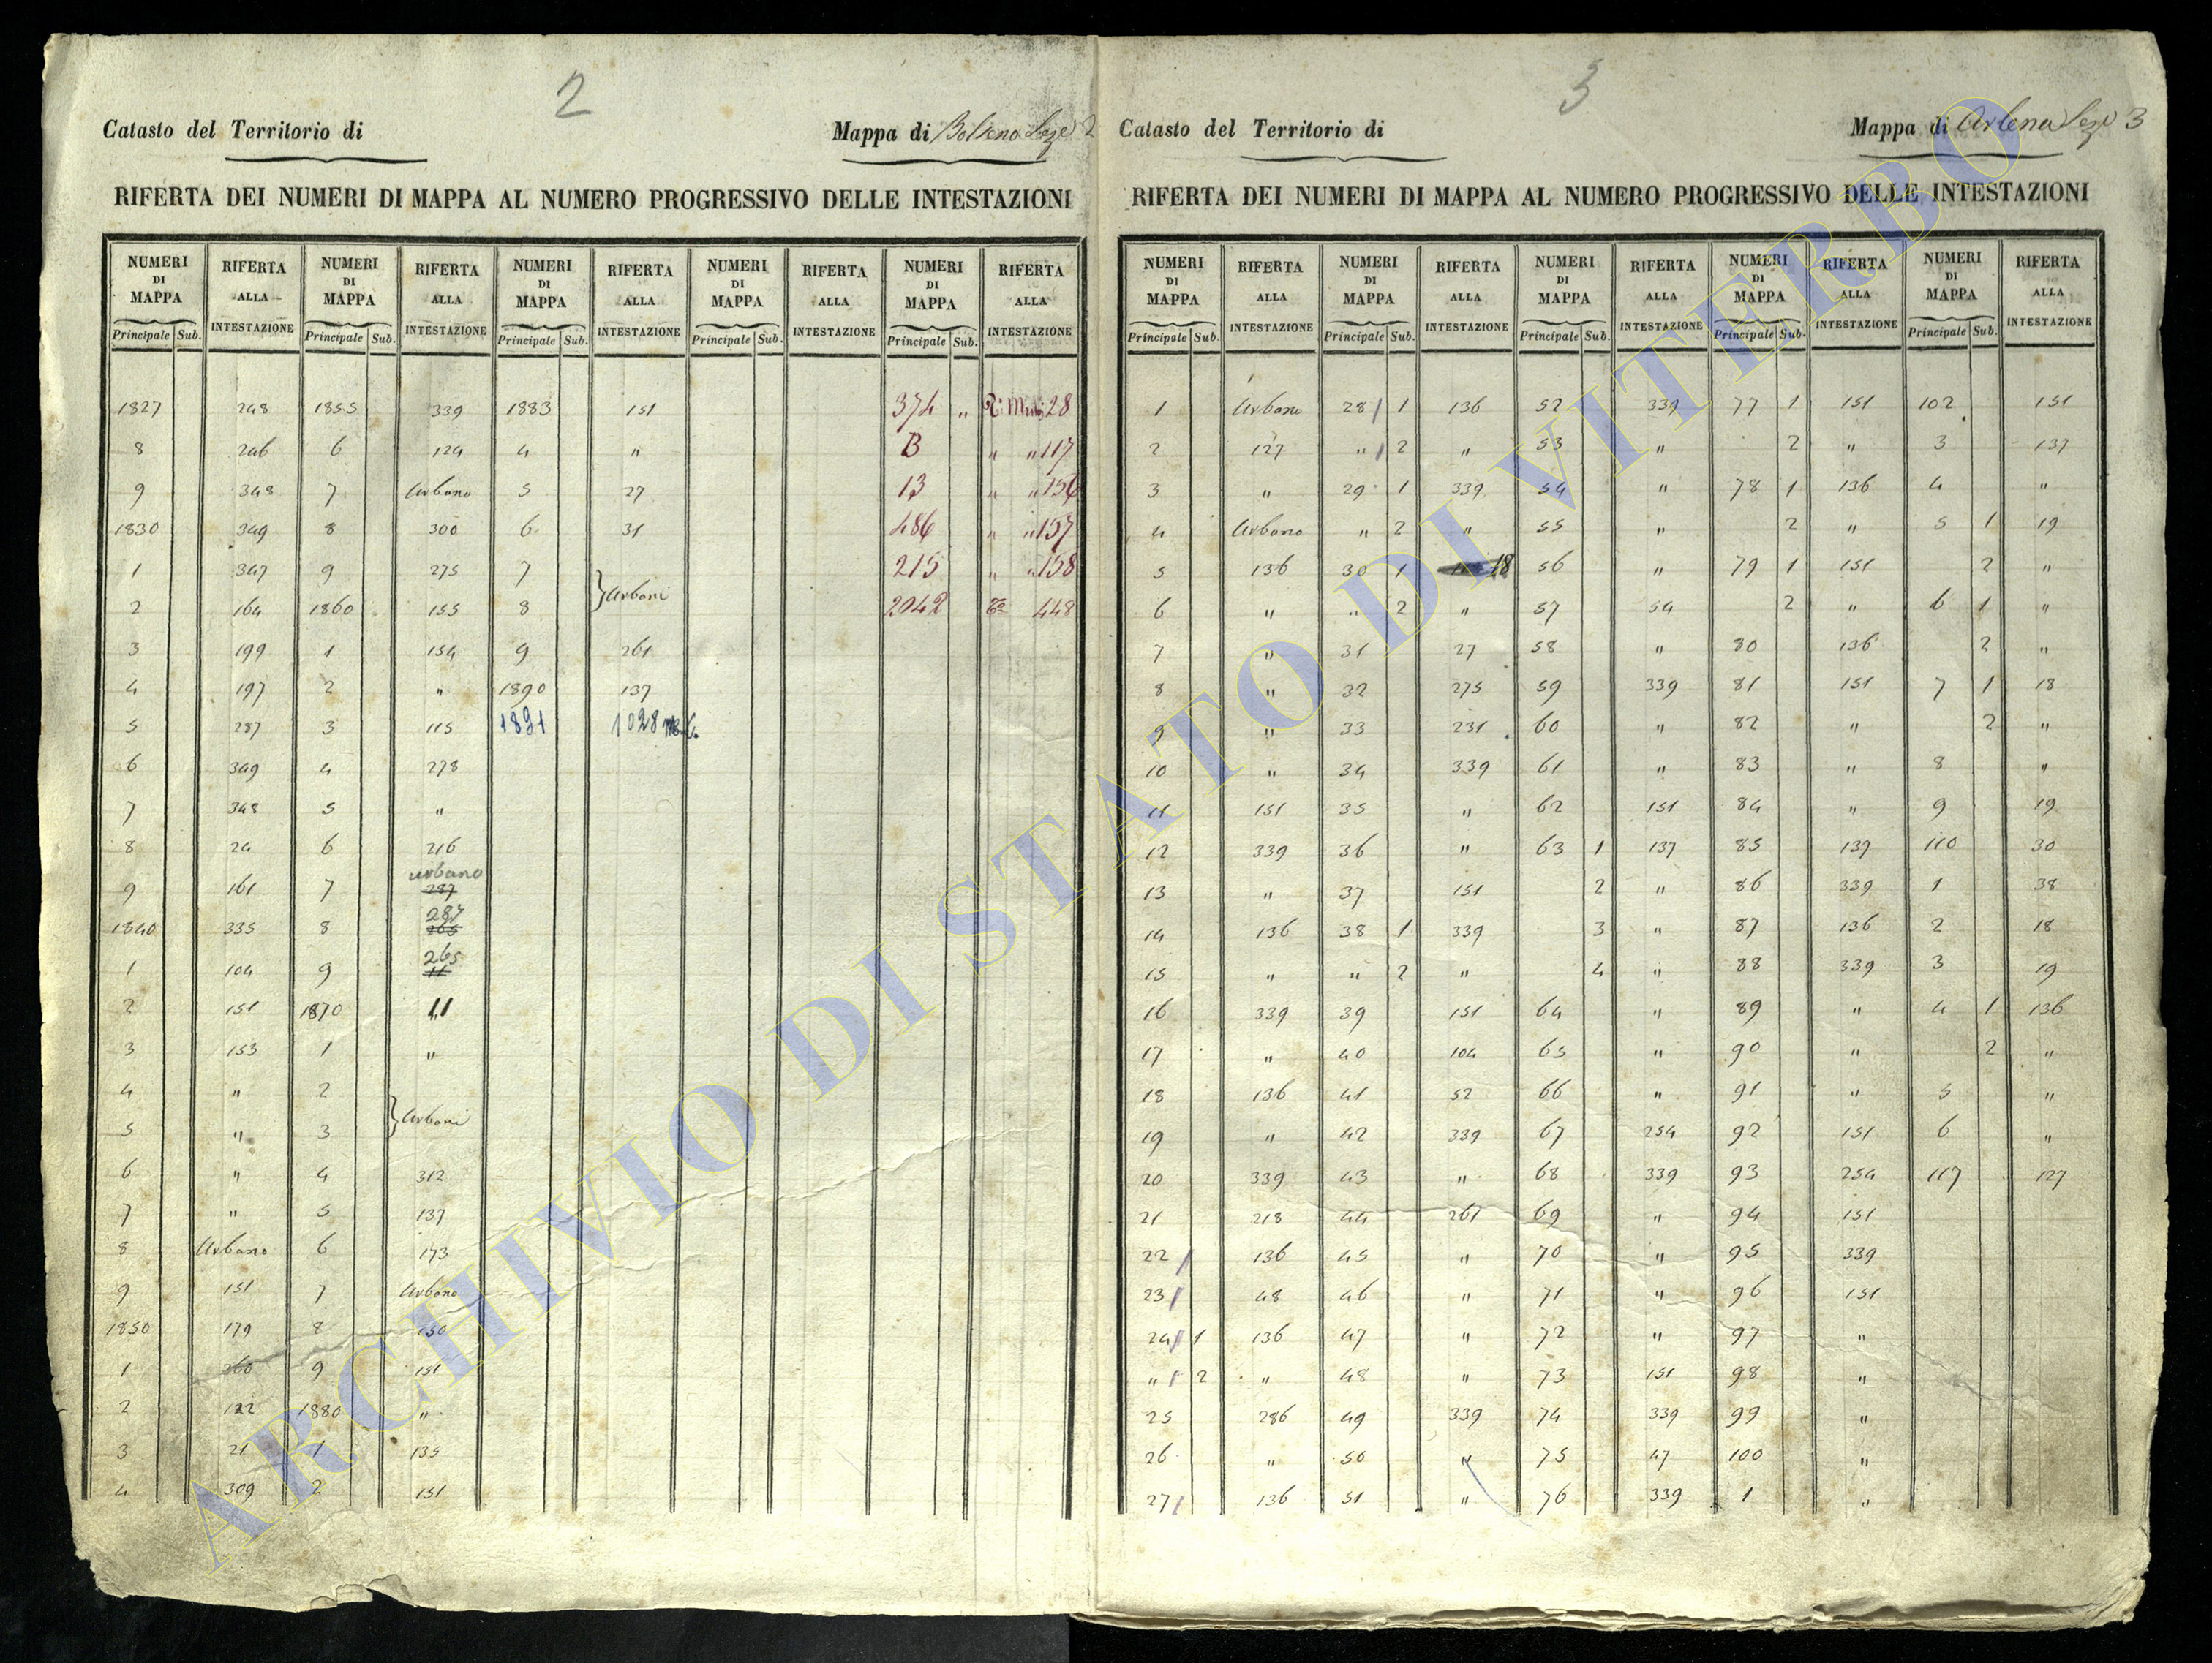 2
Catasto del Territorio di
Mappa di Bolsena Sez.e 2
RIFERTA DEI NUMERI DI MAPPA AL NUMERO PROGRESSIVO DELLE INTESTAZIONI
NUMERI DI MAPPA RIFERTA ALLA INTESTAZIONE NUMERI DI MAPPA RIFERTA ALLA INTESTAZIONE NUMERI DI MAPPA RIFERTA ALLA INTESTAZIONE NUMERI DI MAPPA RIFERTA ALLA INTESTAZIONE NUMERI DI MAPPA RIFERTA ALLA INTESTAZIONE
Principale Sub. Principale Sub. Principale Sub. Principale Sub. Principale Sub.
1827 248 1855 339 1883 151 374 " 28
8 246 6 124 4 " B " " 117
9 348 7 Urbano 5 27 13 " " 156
1830 349 8 300 6 31 486 " " 157
1 347 9 275 7 215 " " 158
Urbani
2 164 1860 155 8 2042 448
3 199 1 154 9 261
4 197 2 " 1890 137
5 287 3 115 1891 1028
6 349 4 278
7 348 5 "
8 24 6 216
urbano
9 161 7 287
287
1840 335 8 265
265
1 104 9 11
2 151 1870 11
3 153 1 "
4 " 2
Urbani
5 " 3
6 " 4 312
7 " 5 137
8 Urbano 6 173
9 151 7 Urbano
1850 179 8 150
1 260 9 151
2 122 1880 "
3 21 1 135
4 309 2 151
3
Catasto del Territorio di
Mappa di Arlena Sez.e 3
RIFERTA DEI NUMERI DI MAPPA AL NUMERO PROGRESSIVO DELLE INTESTAZIONI
NUMERI DI MAPPA RIFERTA ALLA INTESTAZIONE NUMERI DI MAPPA RIFERTA ALLA INTESTAZIONE NUMERI DI MAPPA RIFERTA ALLA INTESTAZIONE NUMERI DI MAPPA RIFERTA ALLA INTESTAZIONE NUMERI DI MAPPA RIFERTA ALLA INTESTAZIONE
Principale Sub. Principale Sub. Principale Sub. Principale Sub. Principale Sub.
1 Urbano 28 1 136 52 339 77 1 151 102 151
2 127 " 2 " 53 " 2 " 3 137
3 " 29 1 339 54 " 78 1 136 4 "
4 Urbano " 2 " 55 " 2 " 5 1 19
5 136 30 1 18 56 " 79 1 151 2 "
6 " " 2 " 57 54 2 " 6 1 "
7 " 31 27 58 " 80 136 2 "
8 " 32 275 59 339 81 151 7 1 18
9 " 33 231 60 " 82 " 2 "
10 " 34 339 61 " 83 " 8 "
11 151 35 " 62 151 84 " 9 19
12 339 36 " 63 1 137 85 137 110 30
13 " 37 151 2 " 86 339 1 38
14 136 38 1 339 3 " 87 136 2 18
15 " " 2 " 4 " 88 339 3 19
16 339 39 151 64 " 89 " 4 1 136
17 " 40 104 65 " 90 " 2 "
18 136 41 52 66 " 91 " 5 "
19 " 42 339 67 254 92 151 6 "
20 339 43 " 68 339 93 254 117 127
21 218 44 261 69 " 94 151
22 136 45 " 70 " 95 339
23 48 46 " 71 " 96 151
24 1 136 47 " 72 " 97 "
" 2 " 48 " 73 151 98 "
25 286 49 339 74 339 99 "
26 " 50 " 75 47 100 "
27 136 51 " 76 339 1 "
ARCHIVIO DI STATO DI VITERBO